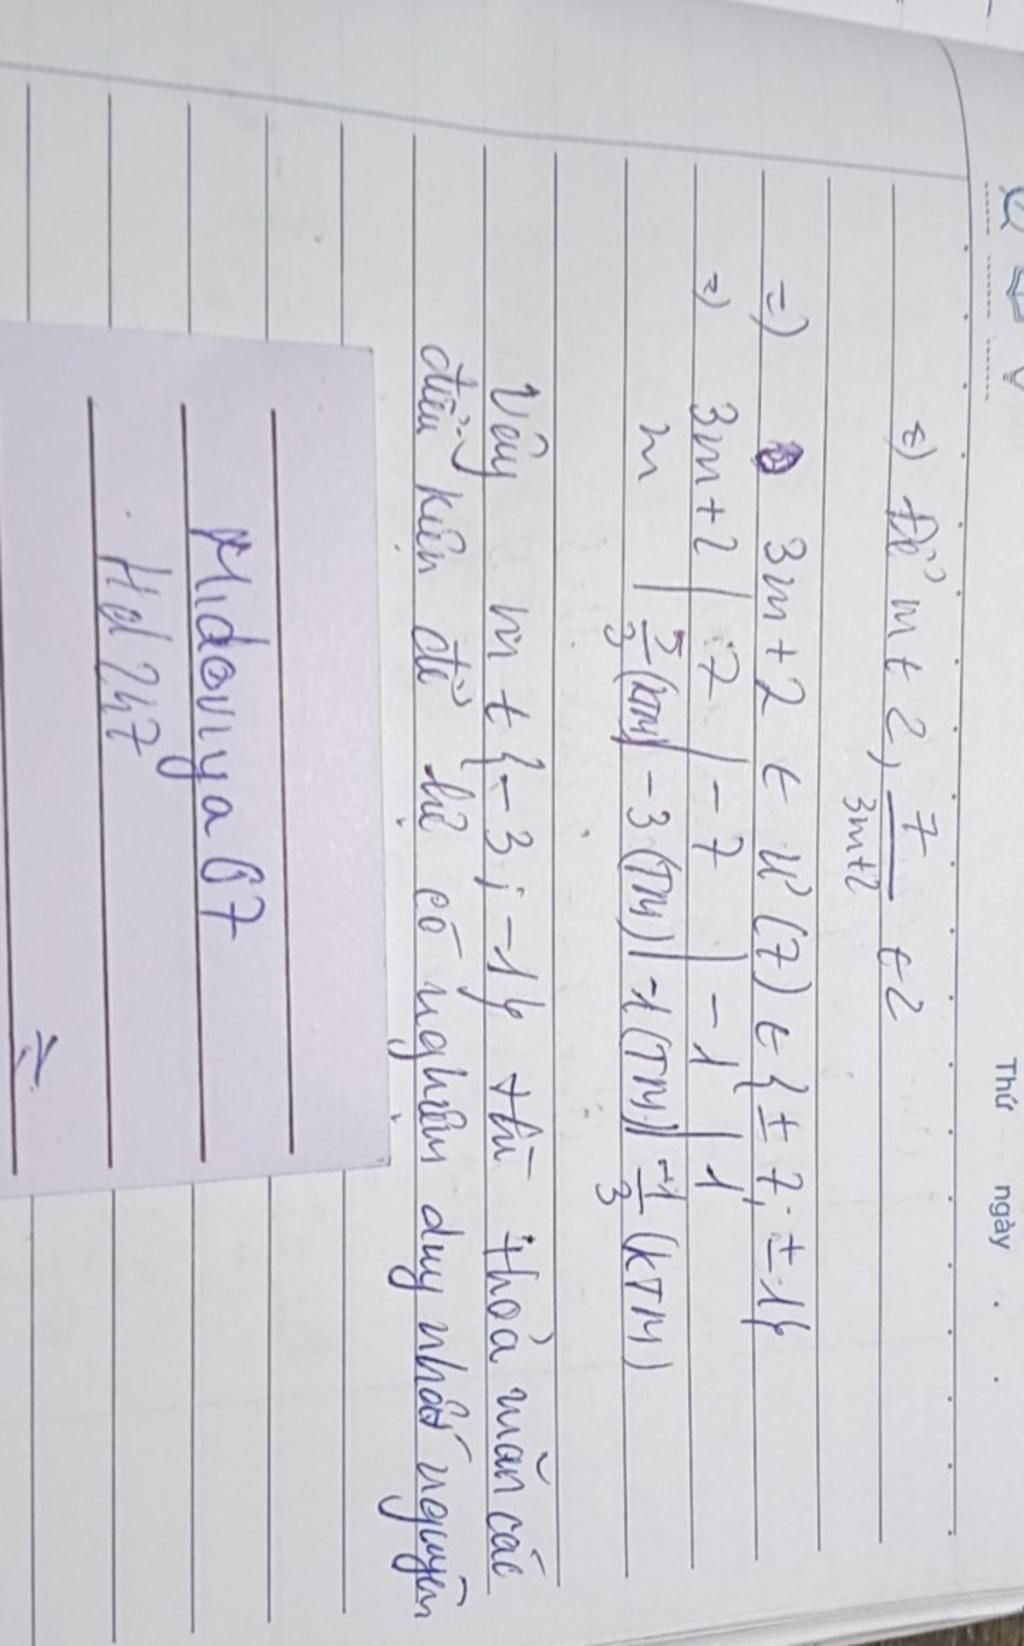 Thứ ngày
=) Để m ∈ Z, 7/(3m+2) ∈ Z
=) 3m + 2 ∈ Ư(7) ∈ {± 7; ± 1}
=) 3m+2 | 7 | - 7 | - 1 | 1
m | 5/3 (KTM) | - 3 (TM) | -1 (TM) | -1/3 (KTM)
Vậy m ∈ {- 3; -1} thì thỏa mãn các
điều kiện để hệ có nghiệm duy nhất nguyên
Midoriya 67
Hd 247